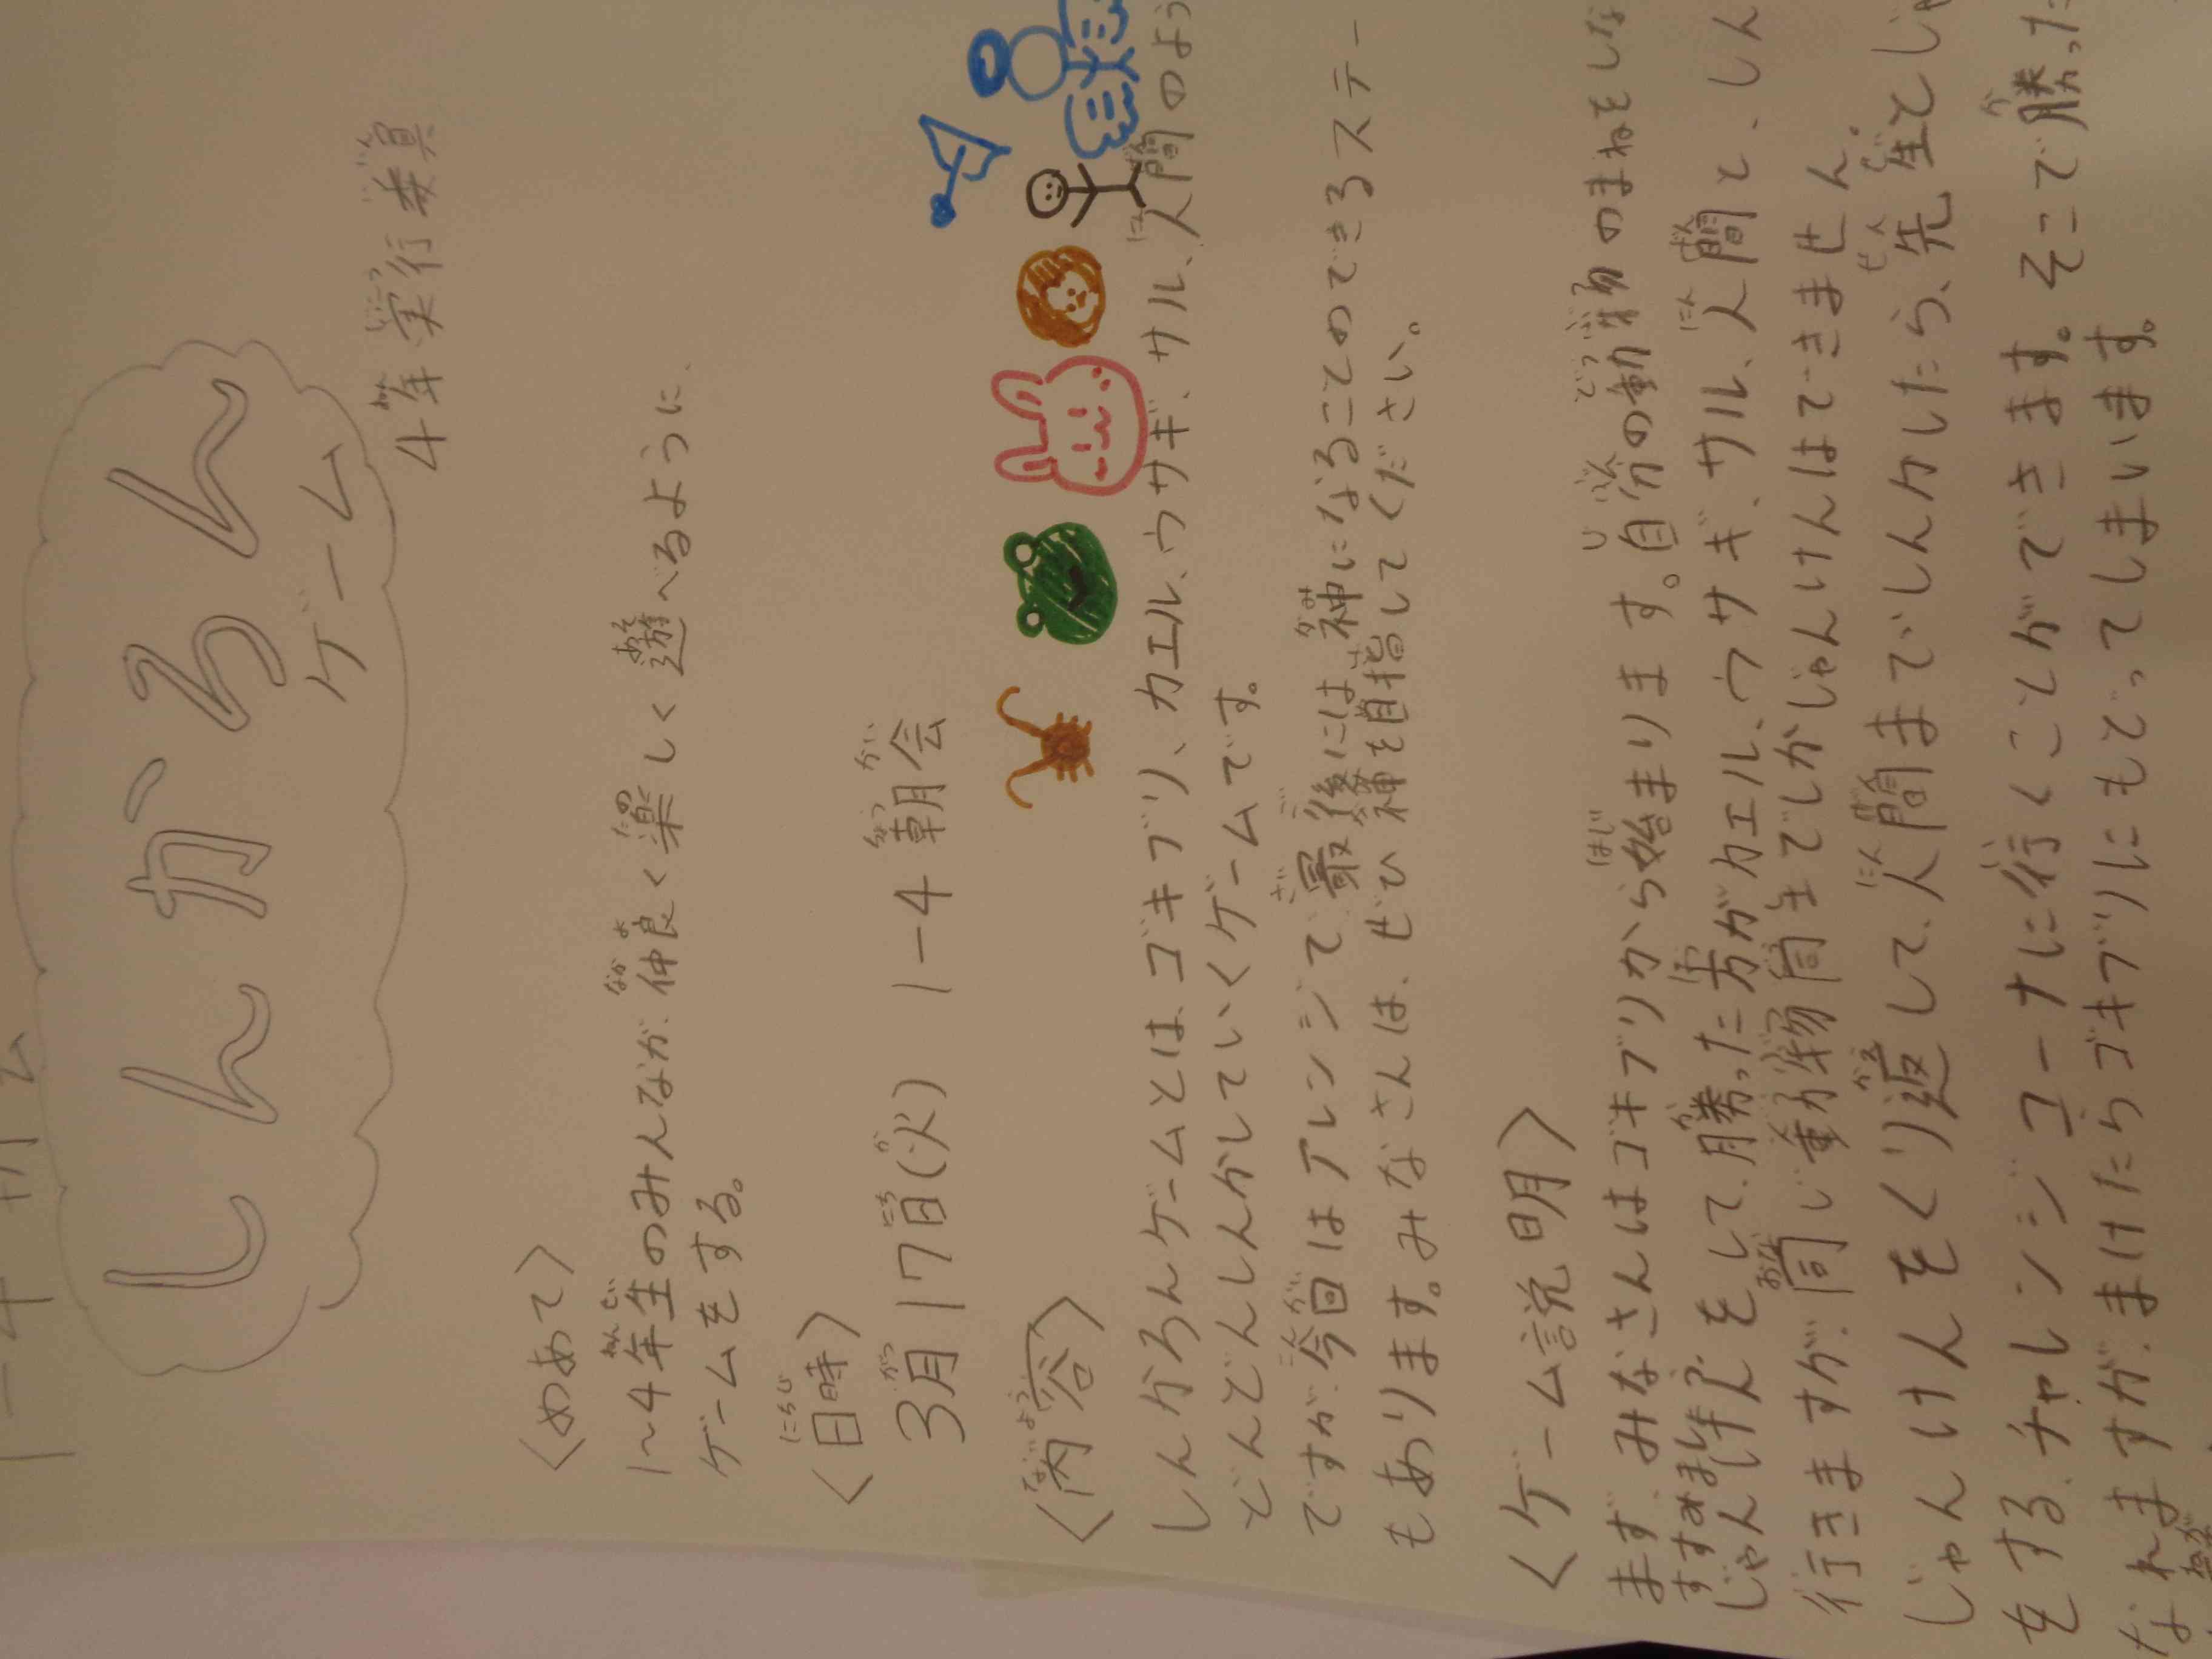 しんかろん
ゲーム
4年実行委員
〈めあて〉
1〜4年生のみんなが、仲良く楽しく遊べるように、
ゲームをする。
〈日時〉
3月17日(火) 1-4 朝会
〈内容〉
しんかろんゲームとは、ゴキブリ、カエル、ウサギ、サル、人間のよう
どんどんしんかしていくゲームです。
ですが、今回はアレンジで、最後には神になることのできるステー
もあります。みなさんは、ぜひ神を目指してください。
〈ゲーム説明〉
まず、みなさんはゴキブリから始まります。自分の動物のまねをしな
じゃんけんをして、勝った方がカエル、ウサギ、サル、人間と、しん
行きますが、同じ動物同士でしかじゃんけんはできません。
じゃんけんをくり返して、人間までしんかしたら、先生とじゃ
をする、チャレンジコーナに行くことができます。そこで勝った
なれますが、まけたらゴキブリにもどってしまいます。